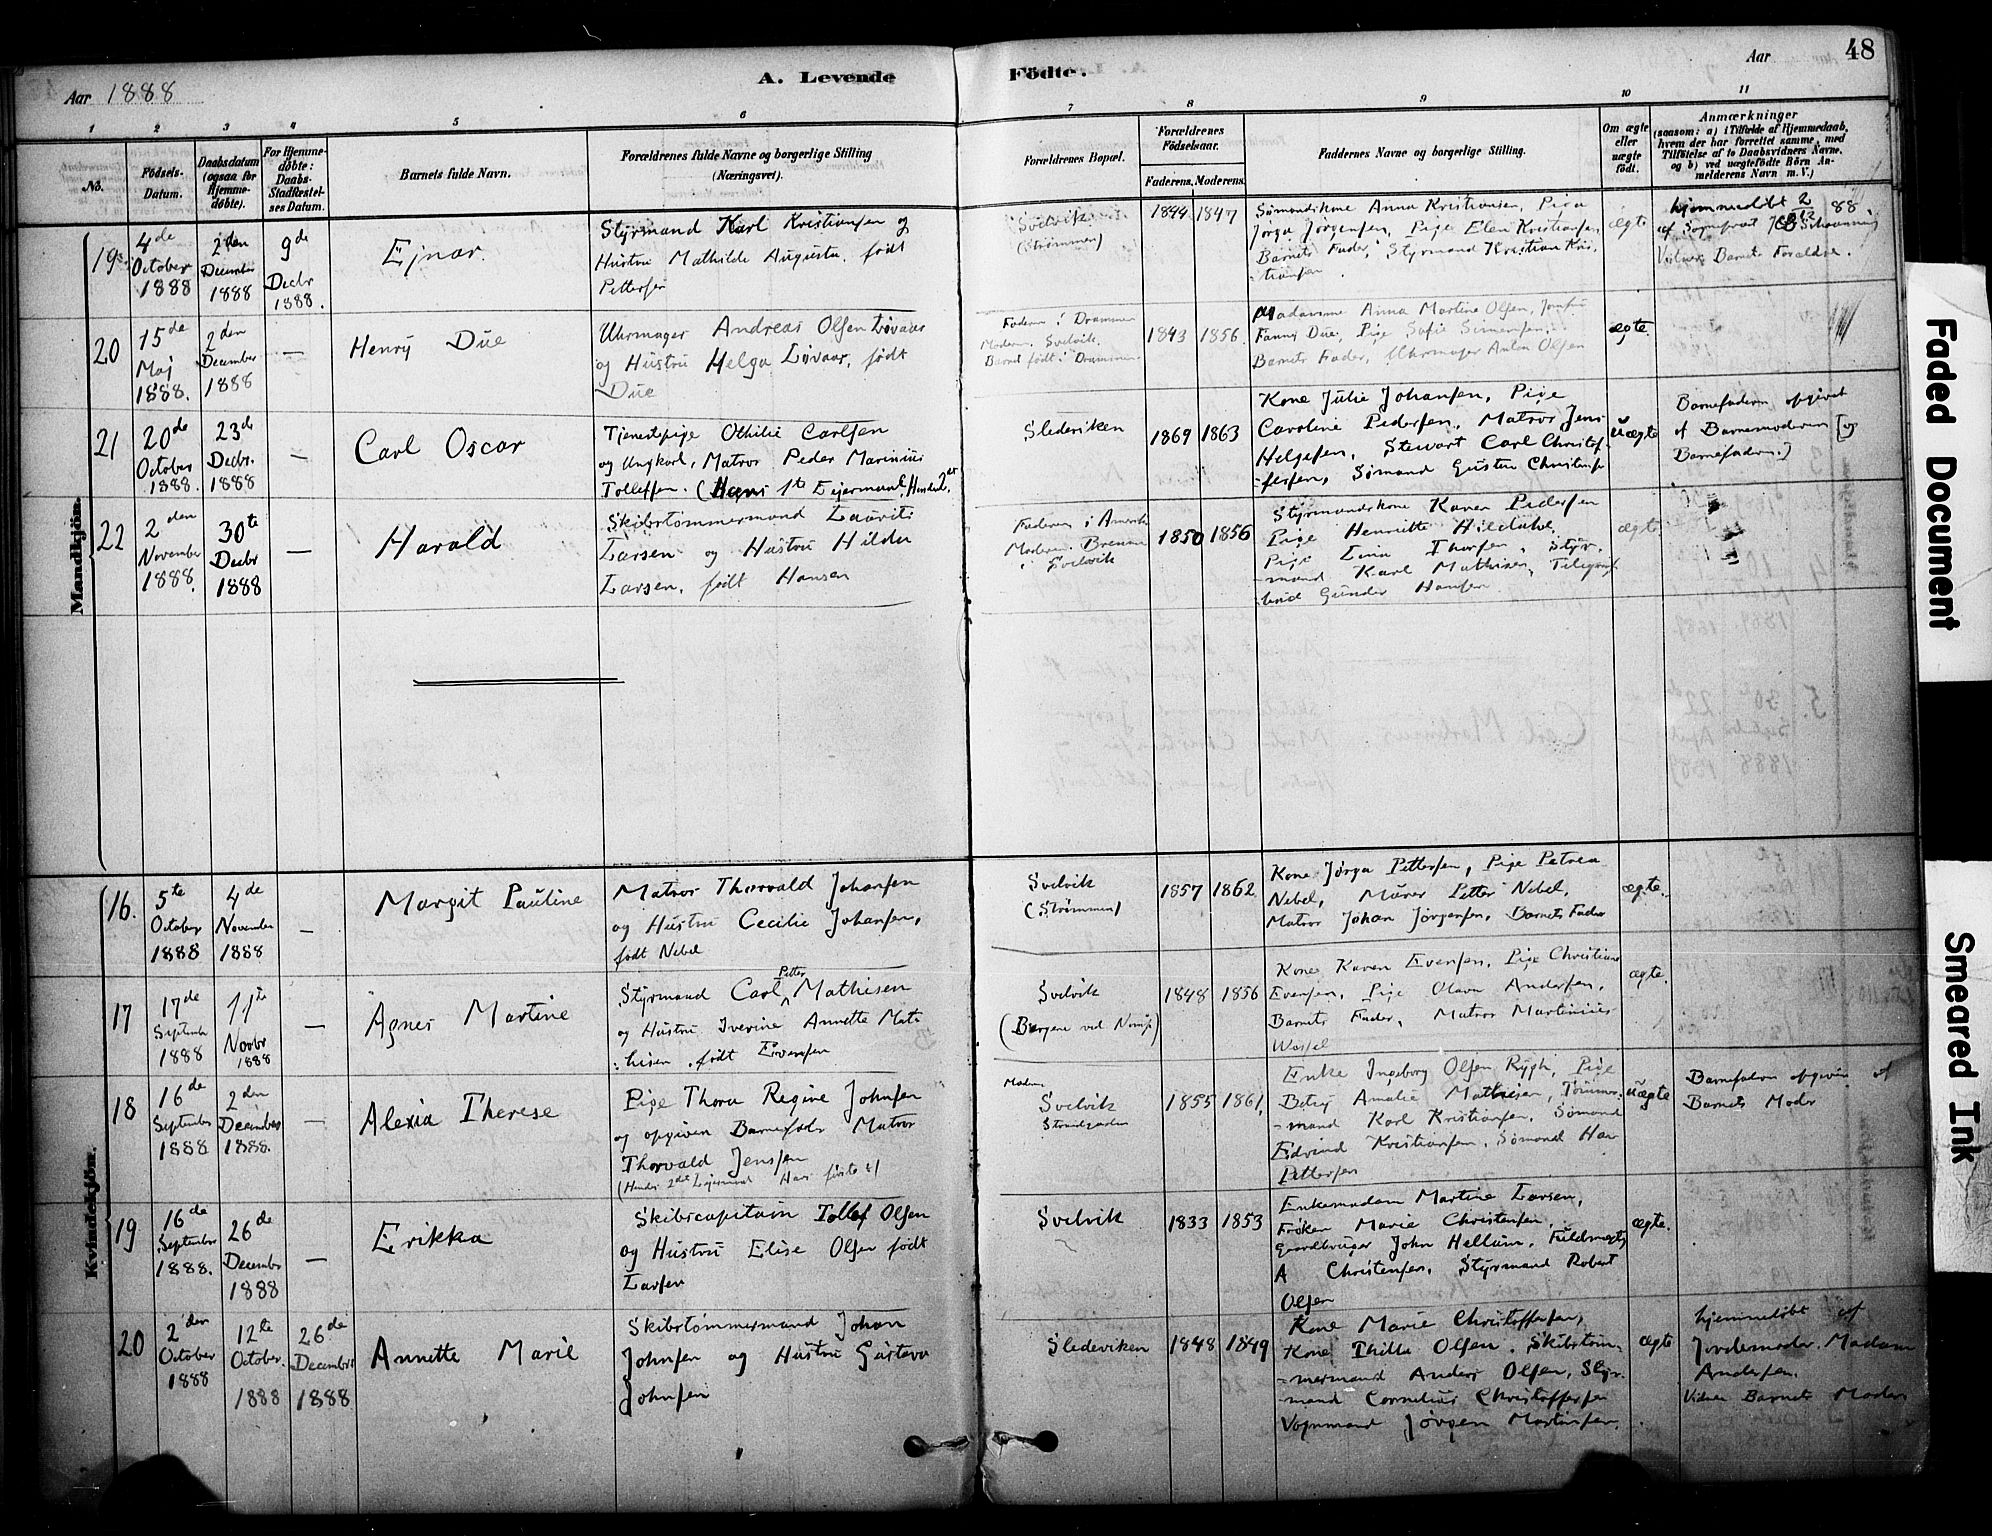 48
A. Levende Födte.
Aar 1888
Aar
1 2 3 4 5 6 7 8 9 10 11
No.
Födsels-
Datum.
Daabsdatum
(ogsaa for
Hjemme-
døbte).
For Hjemme-
døbte:
Daabs-
Stadfæstel-
ses Datum.
Barnets fulde Navn.
Forældrenes fulde Navne og borgerlige Stilling
(Næringsvei).
Forældrenes Bopæl.
Forældrenes
Födselsaar.
Faderens. Moderens.
Faddernes Navne og borgerlige Stilling.
Om ægte
eller
uægte
født.
Anmærkninger
(saasom: a) i Tilfælde af Hjemmedaab,
hvem der har forrettet samme, med
Tilföielse af to Daabsvidners Navne,
og b) ved uægtefödte Börn An-
melderens Navn m. V.)
Mandkjön.
19
4de
October
1888
2den
December
1888
9de
Decbr
1888.
Ejnar.
Styrmand Karl Kristiansen og
Hustru Mathilde Augusta, født
Pettersen
Svelvik
(Strømmen)
1844 1847
Sømandskone Anna Kristiansen, Pige
Jørga Jørgensen, Pige Elen Kristiansen
Barnets Fader, Styrmand Kristian Kris-
tiansen
ægte
hjemmedøbt 2/12 88
af Sognepræst
Vidner Barnets Forældre.
20
15de
Maj
1888.
2den
December
1888
—
Henry Due
Uhrmager Andreas Olsen Løvaas
og Hustru Helga Løvaas, født
Due
Faderen i Drammen
Moderen. Svelvik.
Barnet født i Drammen
1843 1856.
Madamme Anna Martine Olsen, Jomfru
Fanny Due, Pige Sofie Simensen,
Barnets Fader, Uhrmager Anton Olsen
ægte.
21
20de
October
1888.
23de
Decbr.
1888
—
Carl Oscar
Tjenestepige Othilie Carlsen
og Ungkarl, Matros Peder Marinius
Tollefsen. (Hans 1te Lejermaal, Hendes 2det
Slederiken
1869 1863
Kone Julie Johansen, Pige
Caroline Pedersen, Matros Jens
Helgesen, Stewart Carl Christof-
fersen, Sømand Gustav Christof-
fersen
uægte
Barnefaderen opgivet
af Barnemoderen [og
Barnefaderen.]
22
2den
November
1888.
30te
Decbr
1888
—
Harald
Skibstømmermand Laurits
Larsen og Hustru Hilda
Larsen, født Hansen
Faderen i Amerika
Moderen. Brenna
i Svelvik
1850 1856
Styrmandskone Karen Pedersen
Pige Henriette
Pige Lina Thorsen, Styr-
mand Karl Mathisen, Telegraf-
bud Gunder Hansen
ægte
Kvindekjön.
16.
5te
October
1888
4de
November
1888
—
Margit Pauline
Matros Thorvald Johansen
og Hustru Cecilie Johansen,
født Nebel
Svelvik
(Strømmen)
1857 1862
Kone Jørga Pettersen, Pige Petrea
Nebel, Murer Petter Nebel,
Matros Johan Jørgensen, Barnets Fader
ægte.
17
17de
September
1888
11te
Novbr
1888
—
Agnes Martine
Styrmand Carl Petter Mathisen
og Hustru Iverine Annette Mat-
hisen, født Evensen
Svelvik
(Bergene ved
1848 1856
Kone Karen Evensen, Pige Christiane
Evensen, Pige Olava Andersen,
Barnets Fader, Matros Martinius
Wessel
ægte.
18
16de
September
1888
2den
December
1888.
—
Alexia Therese
Pige Thora Regine Johnsen
og opgiven Barnefader Matros
Thorvald Jenssen
(Hendes 2det Lejermaal Hans første
Moderen
Svelvik
Strandgaden
1855 1861.
Enke Ingeborg Olsen Rygh, Pige
Betzy Amalie Mathisen, Tømmer-
mand Karl Kristiansen, Sømand
Edvind Kristiansen, Sømand Hans
Pettersen
uægte
Barnefadren opgiven af
Barnets Moder
19
16de
September
1888.
26de
December
1888
—
Erikka
Skibscaptain Tollef Olsen
og Hustru Elise Olsen født
Larsen
Svelvik
1833 1853
Enkemadam Martine Larsen,
Frøken Marie Christensen,
Gaardbruger John Hellum, Fuldmægtig
A Christensen, Styrmand Robert
Olsen
ægte.
20
2den
October
1888
12te
October.
1888
26de
December
1888
Annette Marie
Skibstømmermand Johan
Johnsen og Hustru Gustava
Johnsen
Slederiken
1848 1849
Kone Marie Christoffersen,
Kone Thilla Olsen. Skibstøm-
mermand Anders Olsen, Styr-
mand Cornelius Christoffersen
Vognmand Jørgen Martinsen.
ægte
hjemmedøbt af
Jordemoder Madam
Andersen.
Vidner Barnets Moder
Faded Document
Smeared Ink